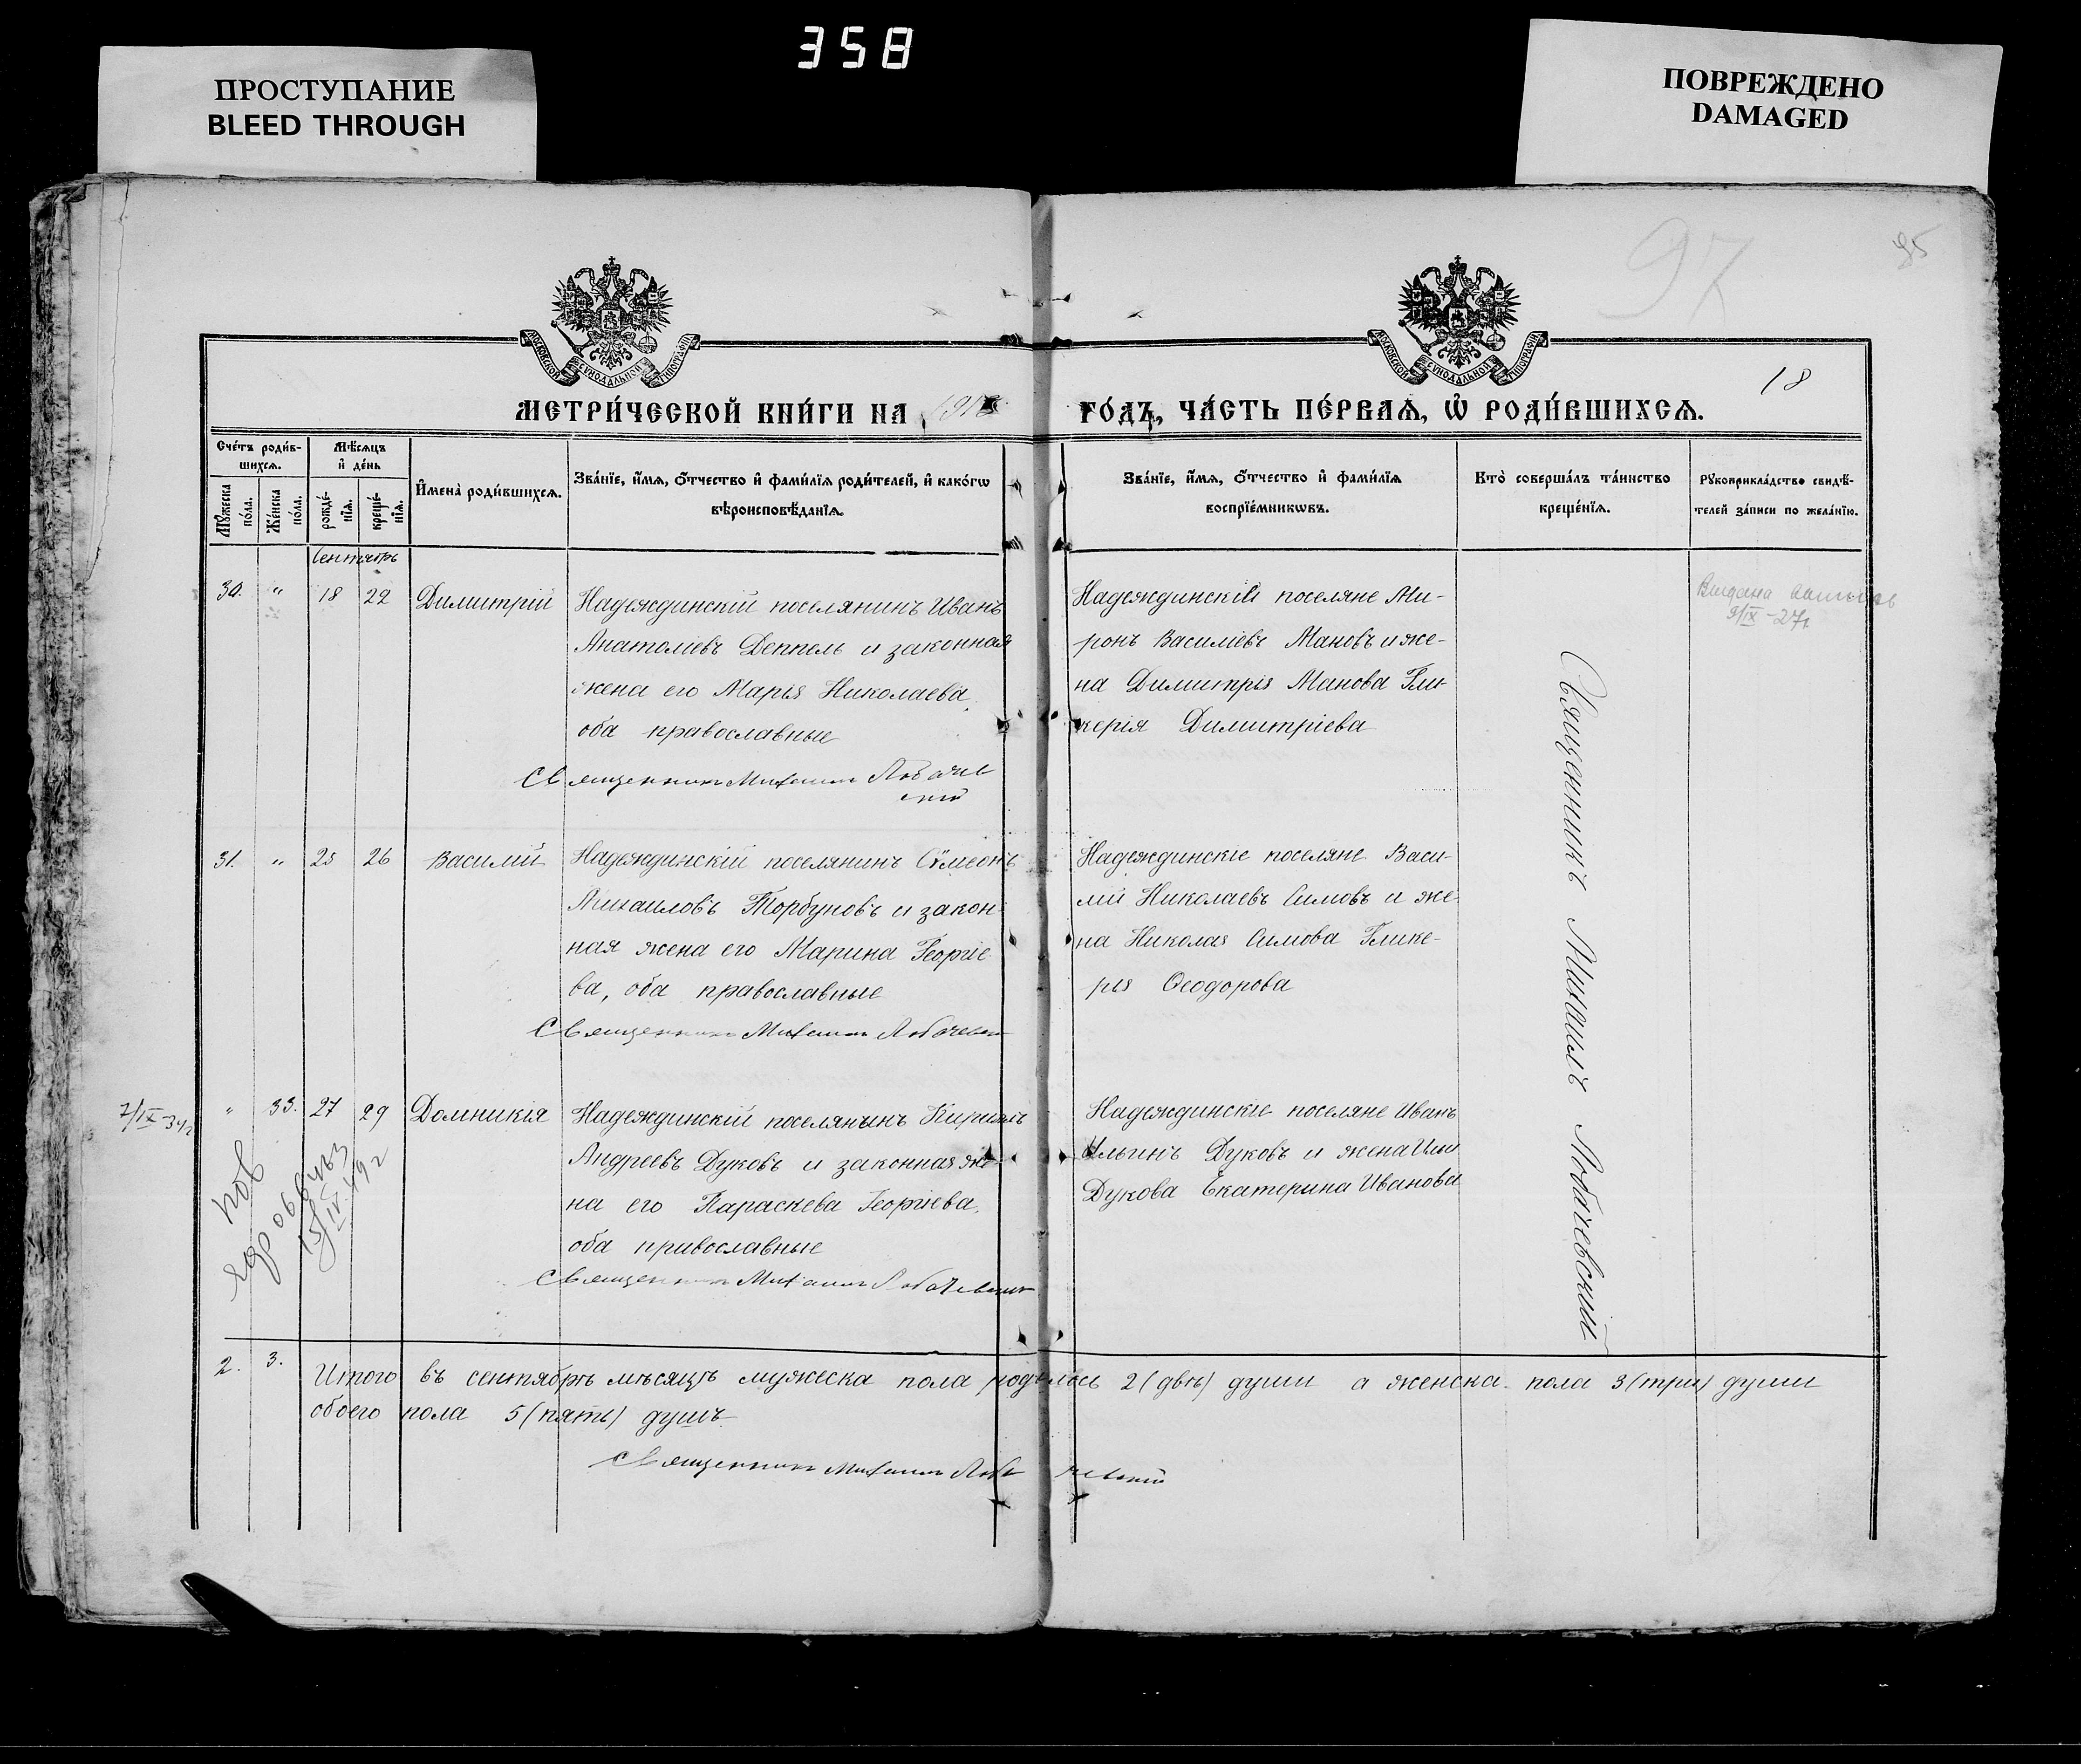 358
ПРОСТУПАНИЕ
BLEED THROUGH
ПОВРЕЖДЕНО
DAMAGED
97
95
18
МОСКОВСКОЙ СѴНОДАЛЬНОЙ ТИПОГРАФІИ
МОСКОВСКОЙ СѴНОДАЛЬНОЙ ТИПОГРАФІИ
МЕТРИ́ЧЕСКОЙ КНИ́ГИ НА
ГО́ДЪ, ЧА́СТЬ ПЕ́РВАѦ, Ѡ҆ РОДИ́ВШИХСѦ.
Сче́тъ роди́в-
шихсѧ.
Мѣ́сѧцъ
и҆ де́нь
Мꙋ́жеска по́ла.
Же́нска по́ла.
рожде́-нїѧ.
креще́-нїѧ.
И҆мена̀ роди́вшихсѧ.
Зва́нїе, и҆́мѧ, ѻ҆́тчество и҆ фами́лїѧ роди́телей, и҆ како́гѡ
вѣроисповѣ́данїѧ.
Зва́нїе, и҆́мѧ, ѻ҆́тчество и҆ фами́лїѧ
воспрїе́мникѡвъ.
Кто̀ соверша́лъ та́инство
креще́нїѧ.
Рꙋкоприкла́дство свидѣ́-
телей за́писи по жела́нїю.
Сентябрь
30. " 18 22 Димитрій
Надеждинскій поселянинъ Иванъ
Анатоліевъ Деппель и законная
жена его Марія Николаева,
оба православные
Священникъ Михаилъ Лобачев
скій
Надеждинскіи поселяне Ми-
ронъ Василіевъ Мановъ и же-
на Димитрія Манова Гли-
керія Димитріева
Выдана
9/IX-27г
31. " 25 26 Василій
Надеждинскій поселянинъ Сѵмеонъ
Михаиловъ Торбуновъ и закон-
ная жена его Марина Георгіе
ва, оба православные
Священникъ Михаилъ Лобачевскій
Надеждинскіе поселяне Васи-
лій Николаевъ Симовъ и же-
на Николая Симова Глике-
рія Ѳеодорова
7/IX-34г
" 33. 27 29 Домникія
Надеждинскій поселянинъ Кириллъ
Андреевъ Дуковъ и законная же-
на его Параскева Георгіева,
оба православные
Священникъ Михаилъ Лобачевскій
Надеждинскіе поселяне Иванъ
Ильинъ Дуковъ и жена Иліи
Дукова Екатерина Иванова
Священникъ Михаилъ Лобачевскій
2. 3. Итого въ сентябрѣ мѣсяцѣ мужеска пола родилось 2 (двѣ) души а женска пола 3 (три) души
обоего пола 5 (пять) душъ
Священникъ Михаилъ Лобачевскій